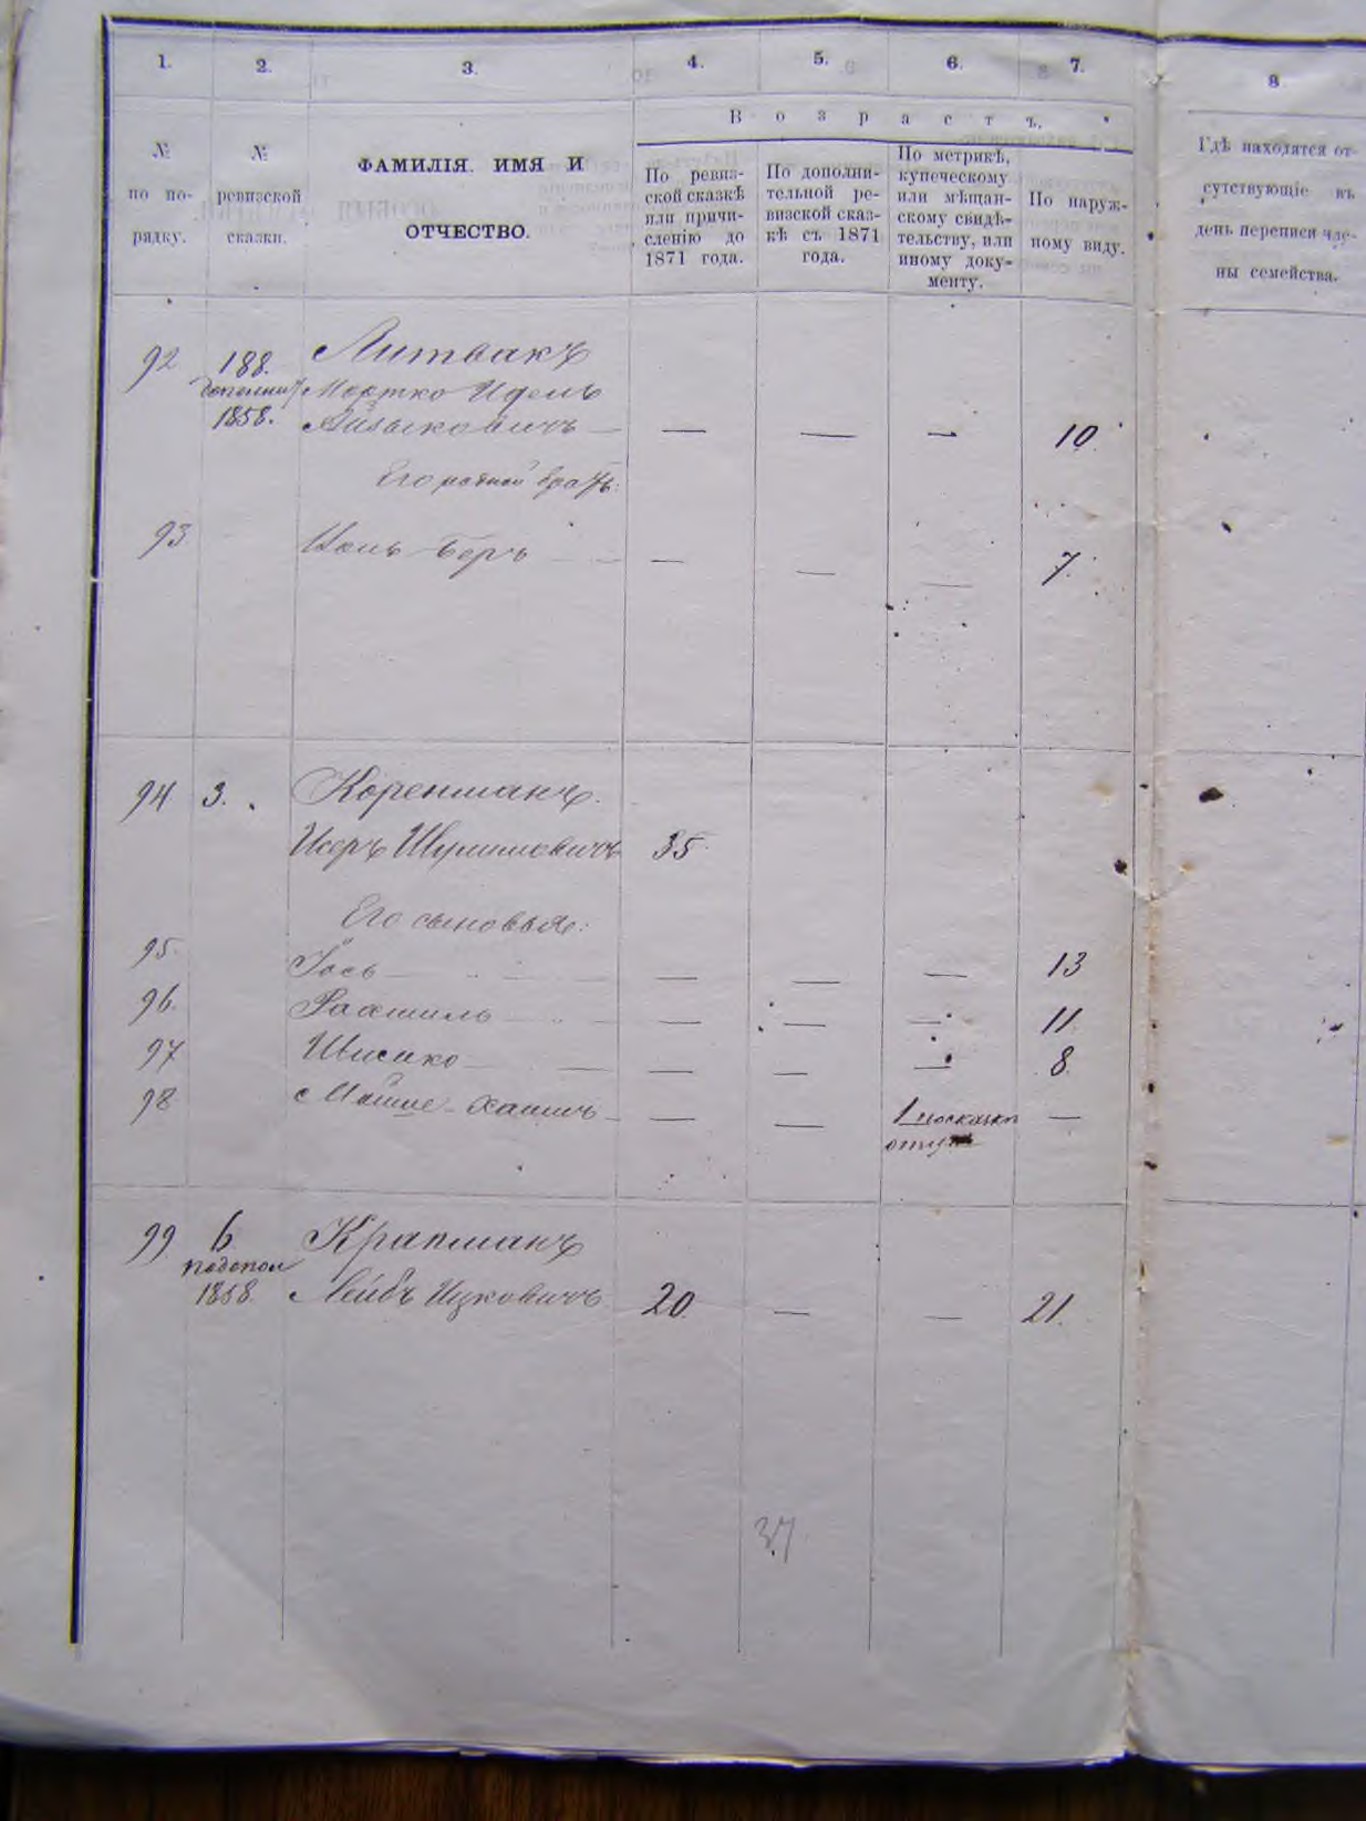 1. 2. 3. 4. 5. 6. 7. 8
Возрастъ.
№ по по-рядку.
№ ревизской сказки.
ФАМИЛІЯ. ИМЯ И
ОТЧЕСТВО.
По ревиз-
ской сказкѣ
или причи-
сленію до
1871 года.
По дополни-
тельной ре-
визской сказ-
кѣ съ 1871
года.
По метрикѣ,
купеческому
или мѣщан-
скому свидѣ-
тельству, или
иному доку-
менту.
По наруж-
ному виду.
Гдѣ находятся от-
сутствующіе въ
день переписи чле-
ны семейства.
92 188. Литвакъ
Мортко Идель
1858. Айзыковичъ — — — 10.
Его родной братъ:
93 Беръ — — — 7.
94 3. Коренманъ.
Исеръ 35.
Его сыновья:
95. Іось — — — 13
96. — — — 11
97 — — — 8.
98 Мойше — — 1 —
99 6 Крапманъ
1858. Лейбъ Ицковичъ 20. — — 21.
37